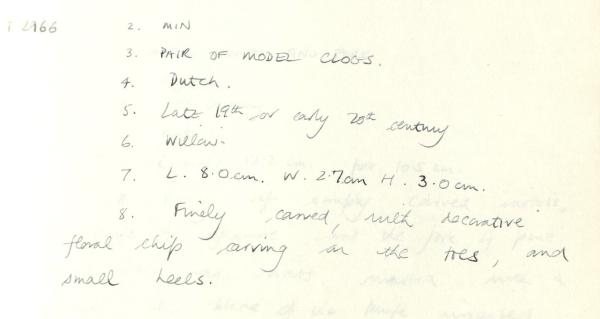 T 2966 2. MIN
3. PAIR OF MODEL CLOGS.
4. Dutch.
5. Late 19th or early 20th century
6. Willow.
7. L. 8.0cm. W. 2.7cm H. 3.0cm.
8. Finely carved, with decorative
floral chip carving on the toes, and
small heels.